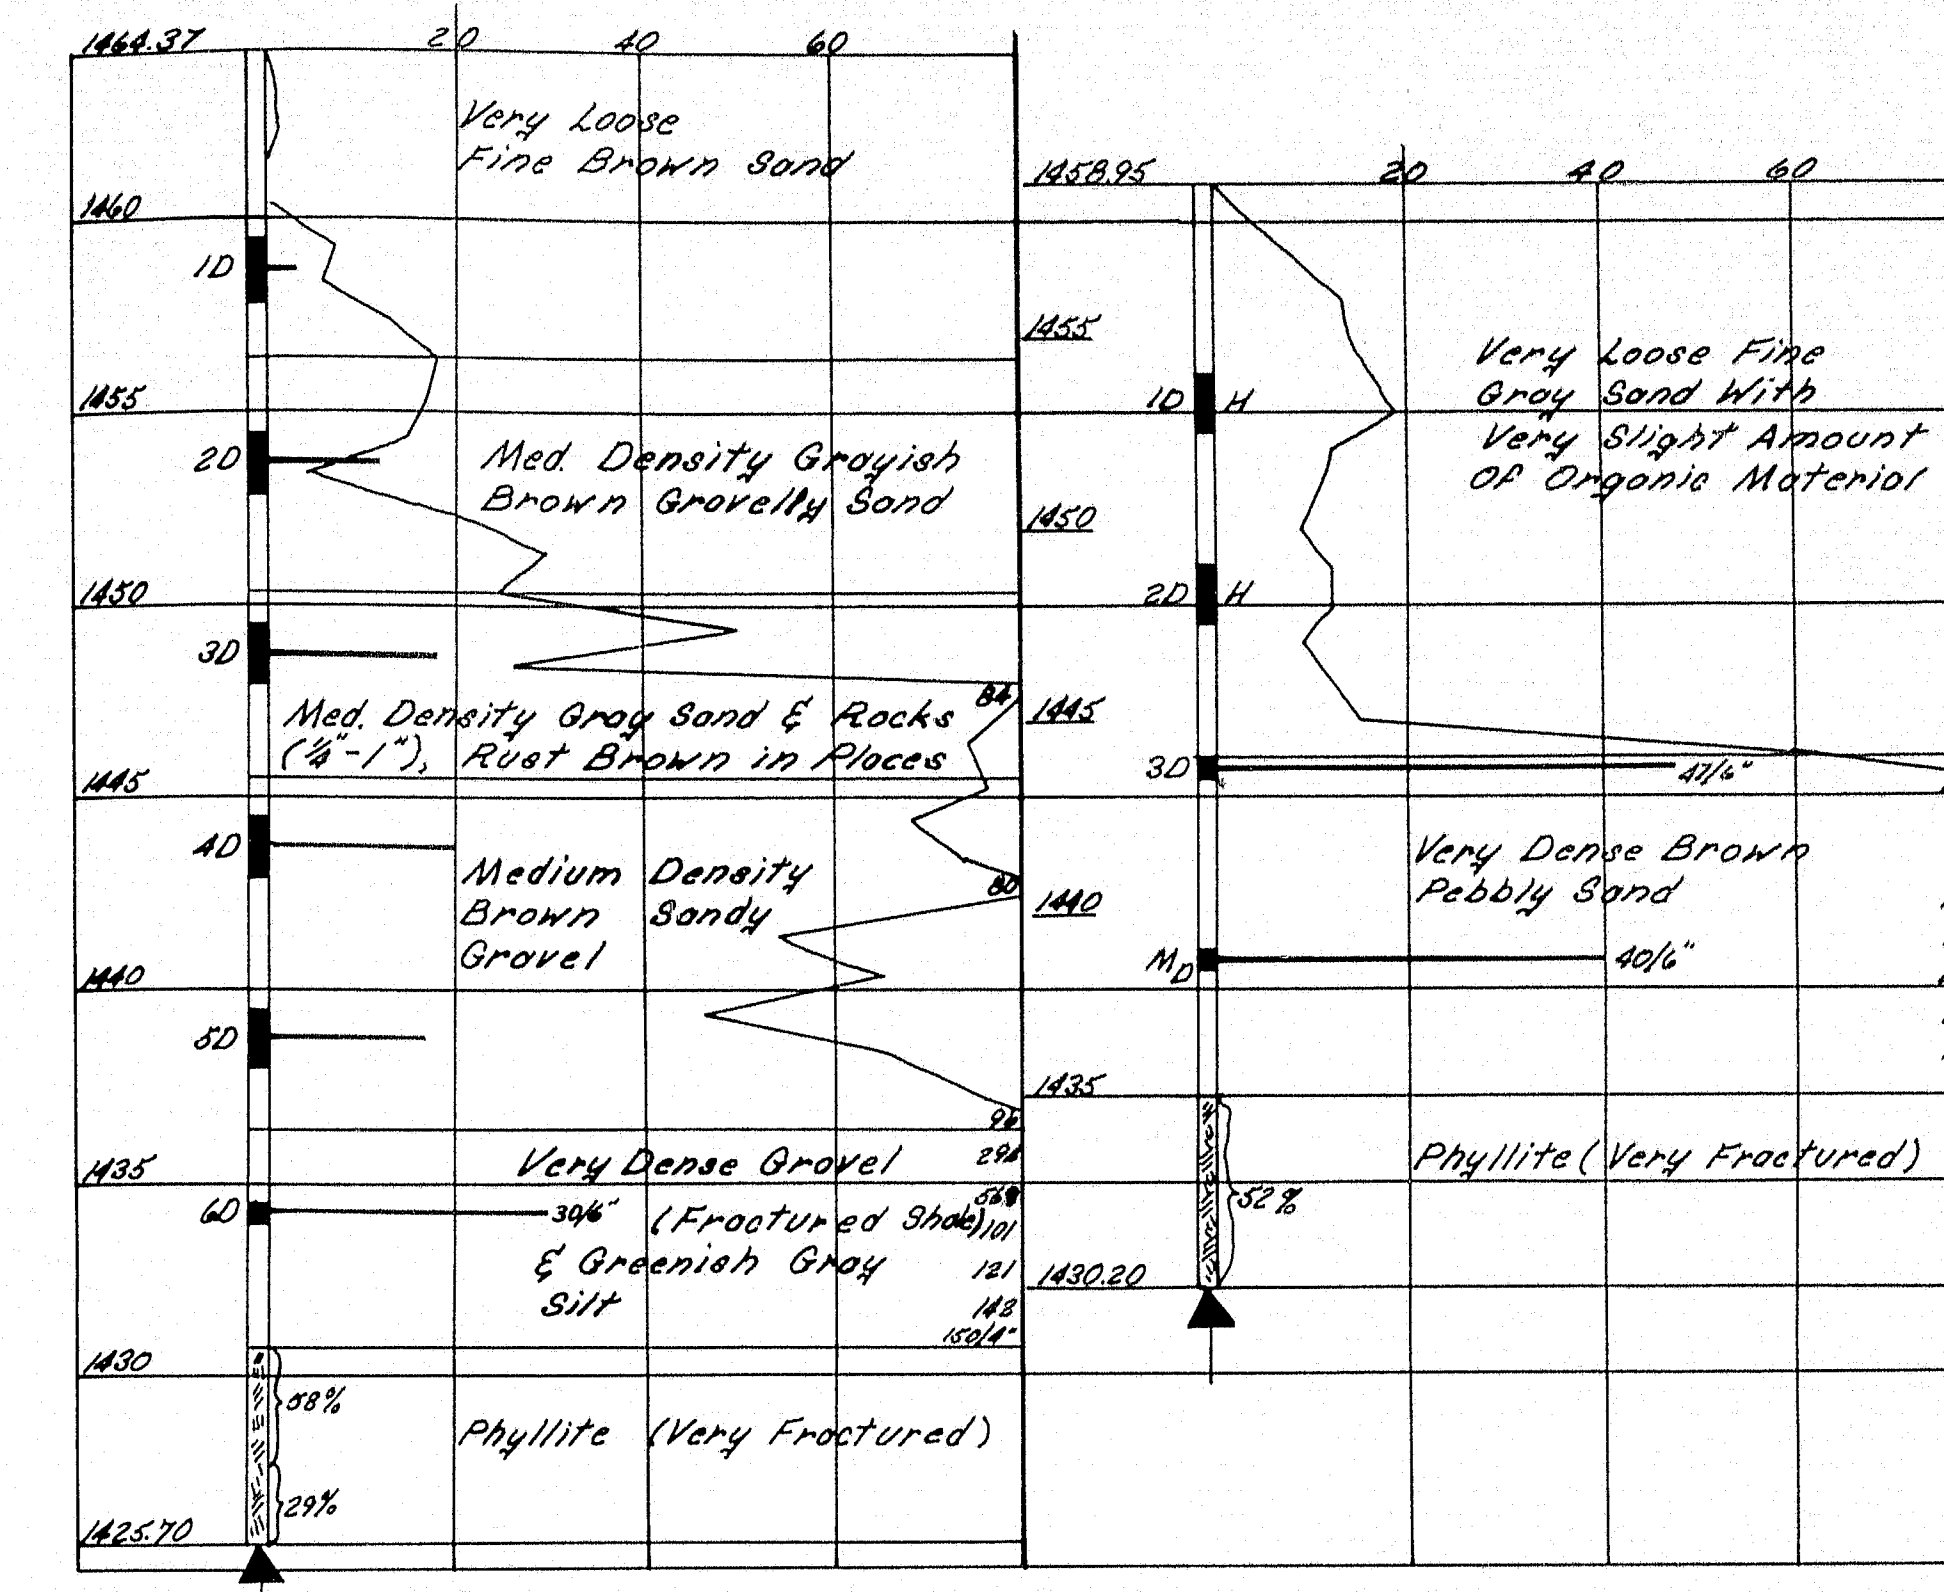 1464.37
20 40 60
Very Loose
Fine Brown Sand
1460
1D
1455
2D
Med. Density Grayish
Brown Gravelly Sand
1450
3D
84
Med. Density Gray Sand & Rocks
(1/4"-1"), Rust Brown in Places
1445
4D
Medium Density
Brown Sandy
Gravel
80
1440
5D
95
Very Dense Gravel
1435
6D
30/6" (Fractured Shale)
101
& Greenish Gray
121
Silt
148
150/4"
1430
58%
Phyllite (Very Fractured)
29%
1425.70
1458.95
20 40 60
1455
Very Loose Fine
Gray Sand With
Very Slight Amount
Of Organic Material
1D H
1450
2D H
1445
3D
47/6"
Very Dense Brown
Pebbly Sand
1440
MD
40/6"
1435
Phyllite (Very Fractured)
52%
1430.20